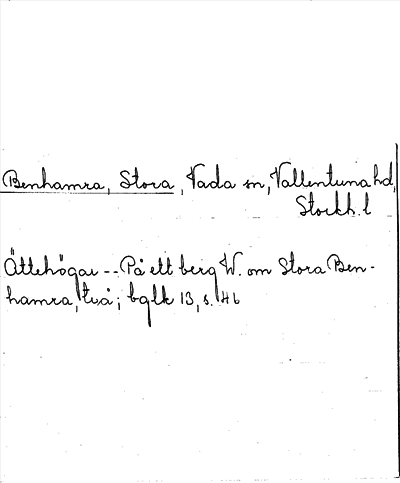 Benhamra, Stora, Vada sn, Vallentuna hd,
Stockh. l
Ättehögar -- På ett berg W. om Stora Ben-
hamra, två; bglk 13, s. 46